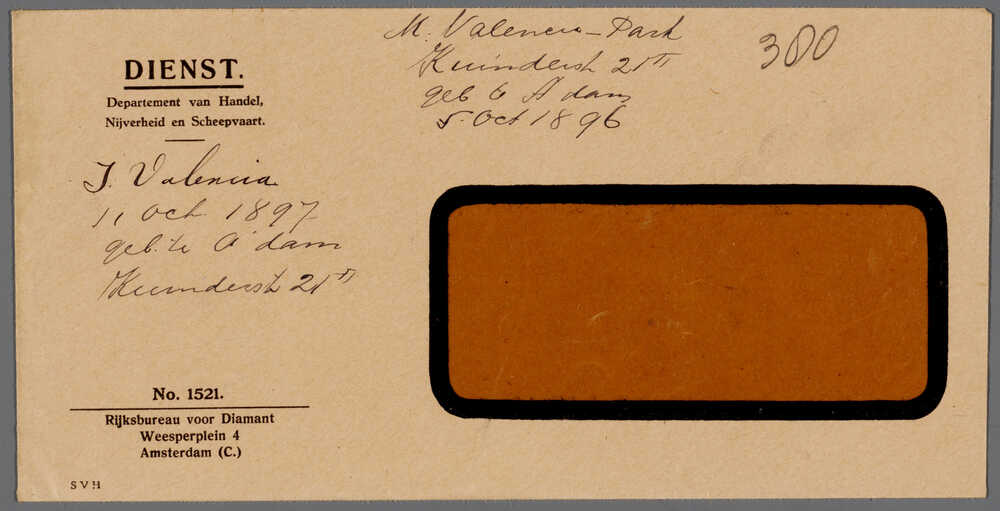 DIENST.
Departement van Handel,
Nijverheid en Scheepvaart.
J. Valencia
11 Oct. 1897
geb. te A'dam
Kuinderst 21 II
No. 1521.
Rijksbureau voor Diamant
Weesperplein 4
Amsterdam (C.)
SVH
M. Valencia-Park
Kuinderst 21 II
geb te A'dam
5 Oct 1896
380